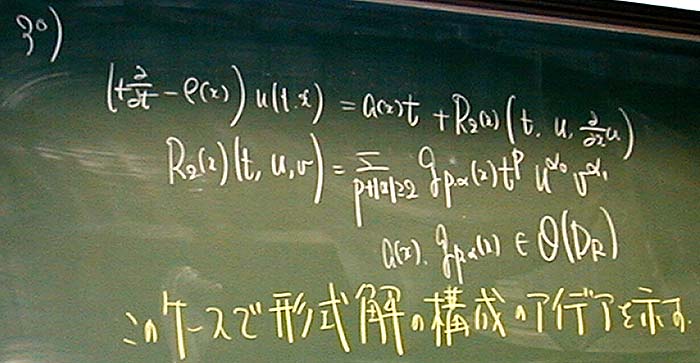 3°)
(t∂/∂t − ρ(x)) u(t,x) = a(x)t + R₂(x)(t, u, ∂/∂x u)
R₂(x)(t, u, v) = Σ_{p+|α|≥2} g_{p,α}(x) t^p u^{α₀} v^{α₁}
a(x), g_{p,α}(x) ∈ O(D_R)
このケースで形式解の構成のアイデアを示す